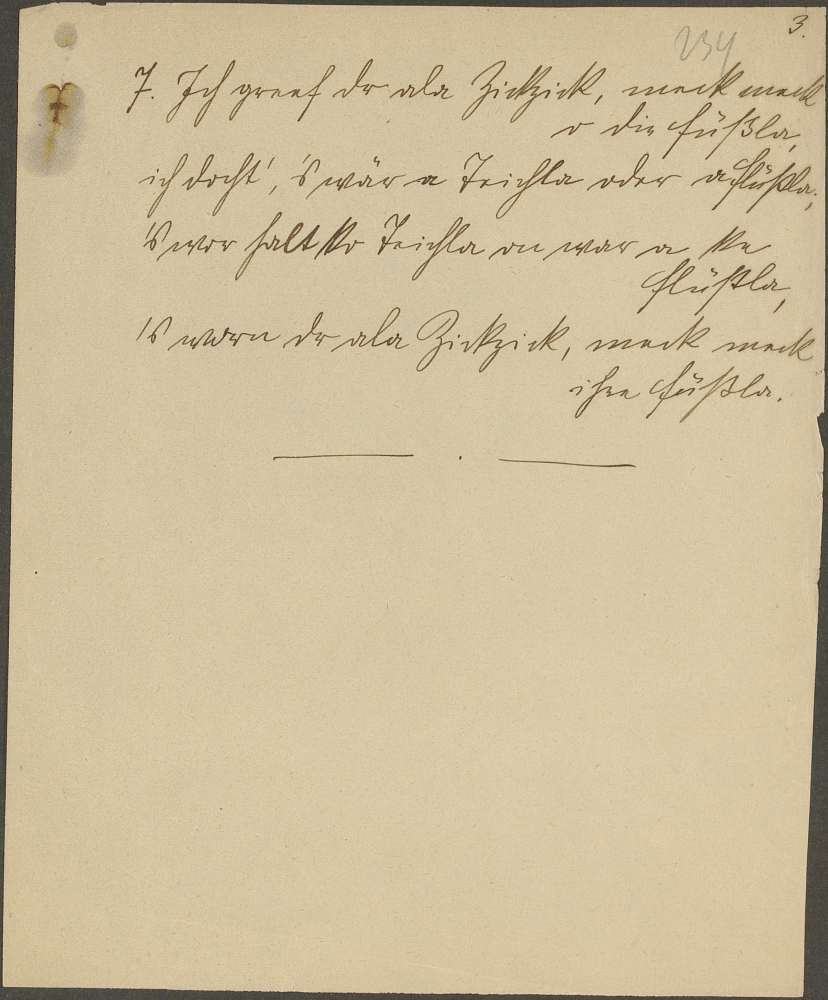 3.
234
7. Ich greef dr ala Zickzick, meck meck
o die Füßla,
ich docht', 's wär a Teichla oder a Flüßla;
's wor halt ko Teichla on war a ke
Flüßla,
's warn dr ala Zickzick, meck meck
ihre Füßla.